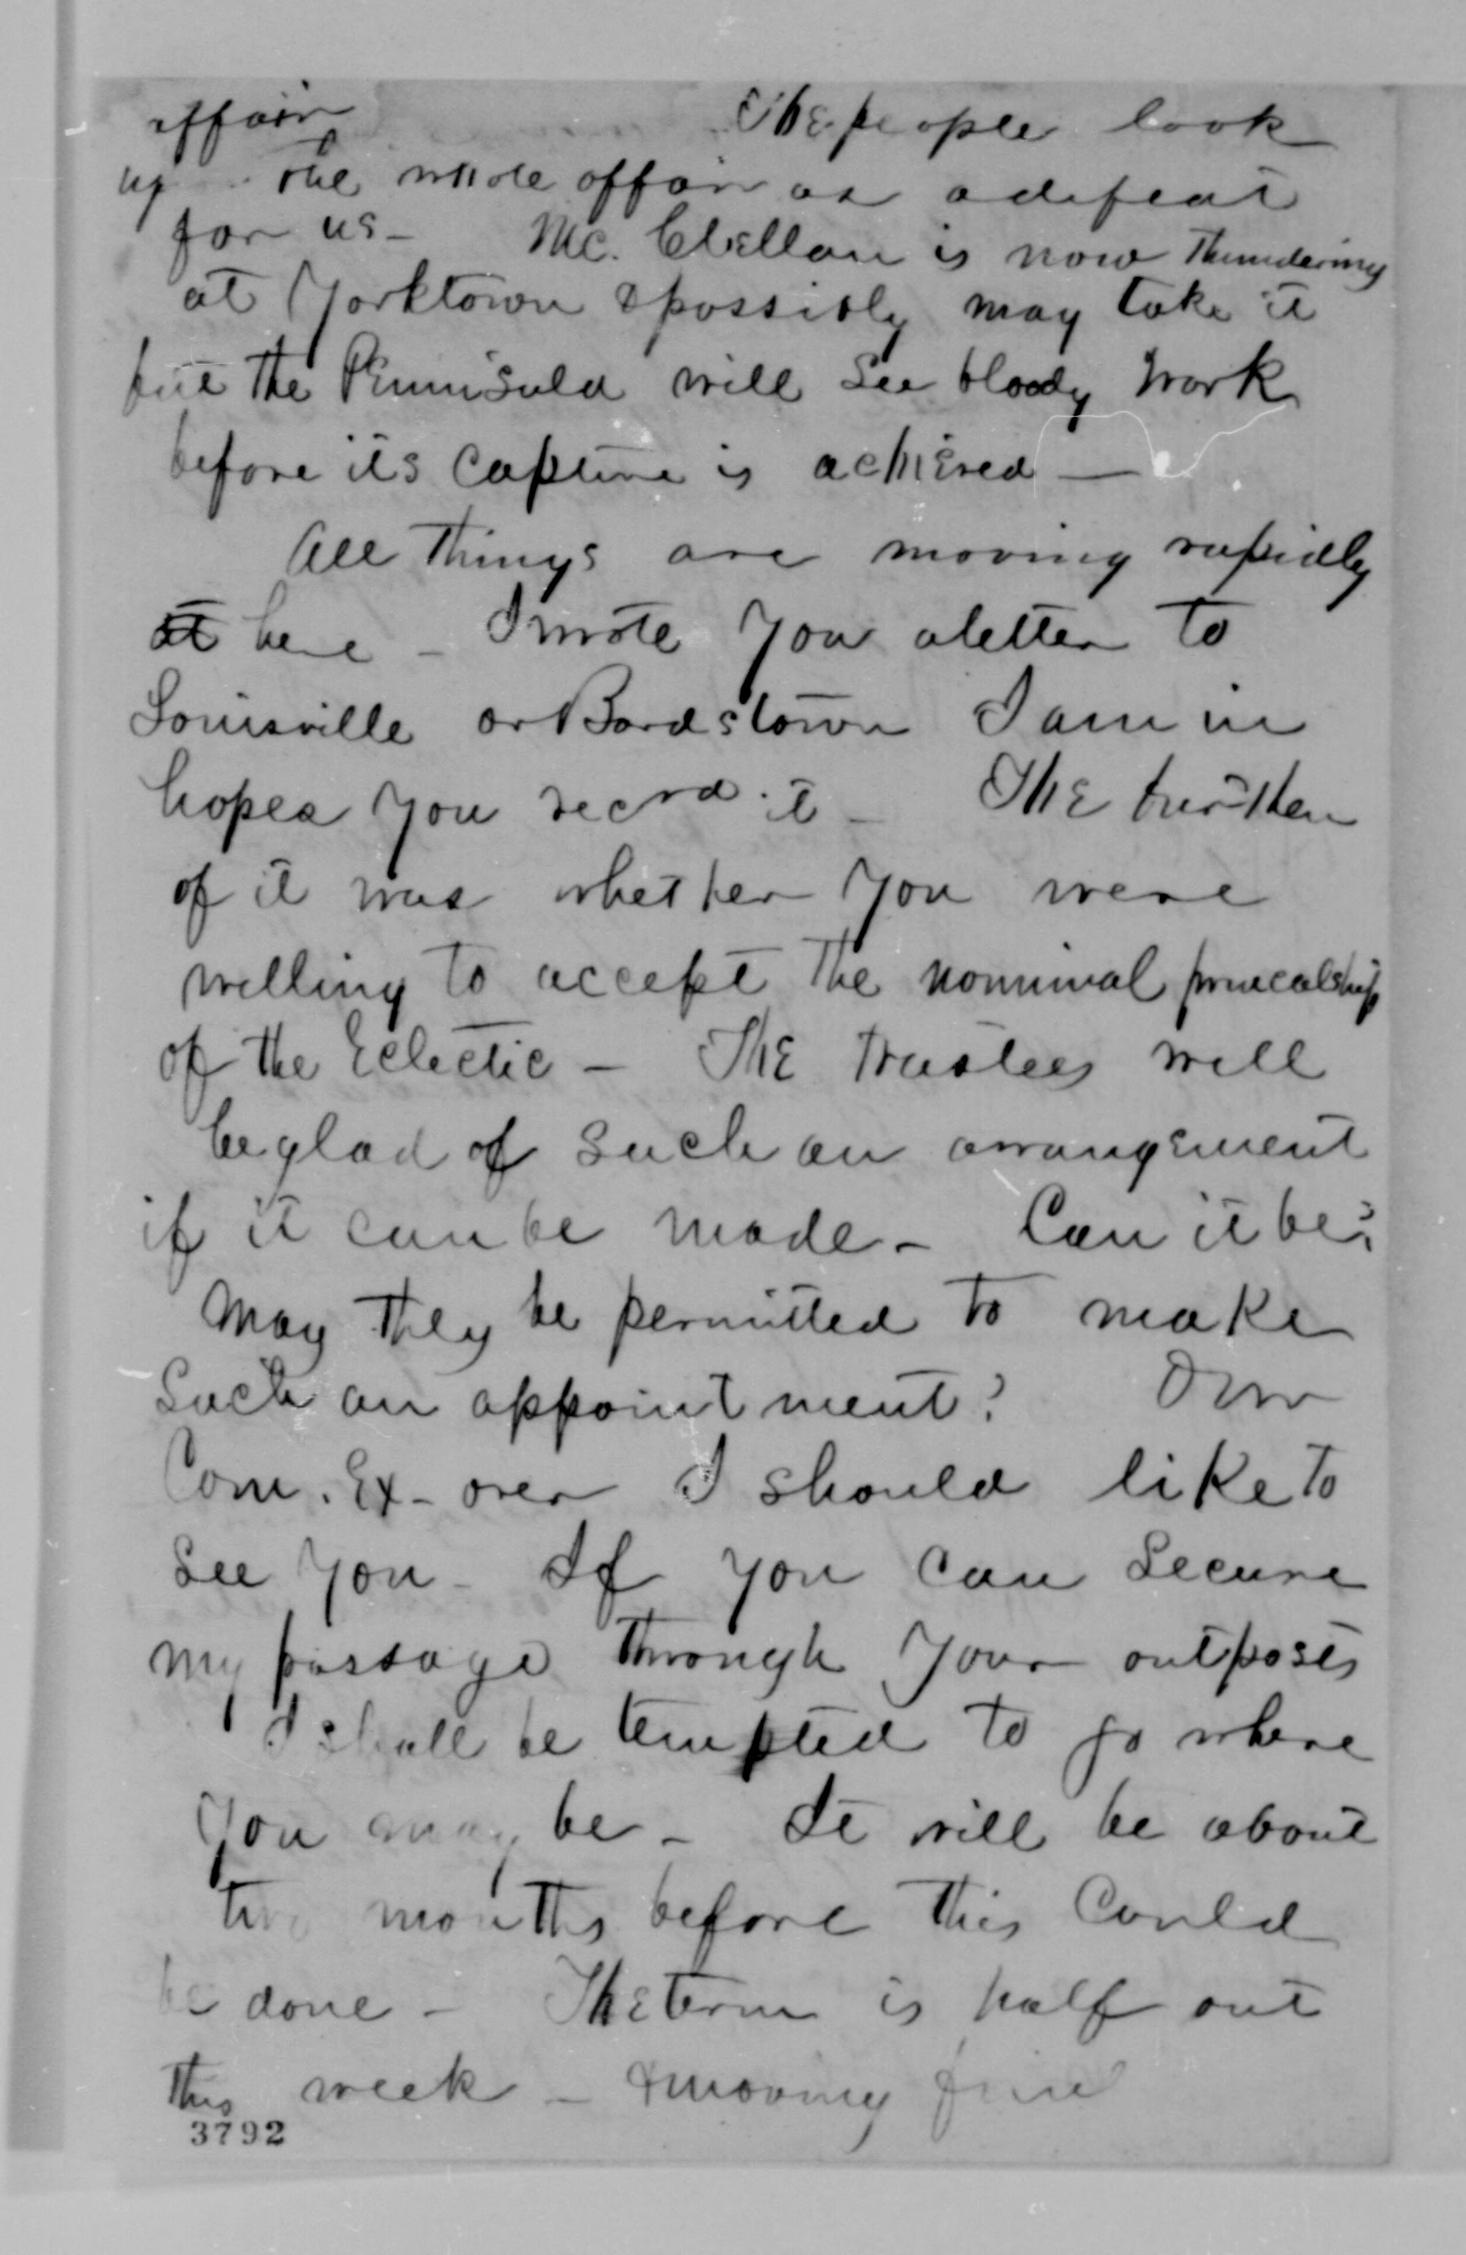 affair The people look
up the whole affair as a defeat
for us - Mc. Clellan is now thundering
at Yorktown & possibly may take it
but the Peninsula will see bloody work
before its capture is achieved -
All things are moving rapidly
at here - I wrote you a letter to
Louisville or Bardstown I am in
hopes you recvd it - The burthen
of it was whether you were
willing to accept the nominal principalship
of the Eclectic - The trustees will
be glad of such an arrangement
if it can be made - Can it be?
May they be permitted to make
such an appointment? Our
Com. Ex - over I should like to
see you - If you can secure
my passage through your outposts
I shall be tempted to go where
you may be - It will be about
two months before this could
be done - The term is half out
this week - & moving fine
3792